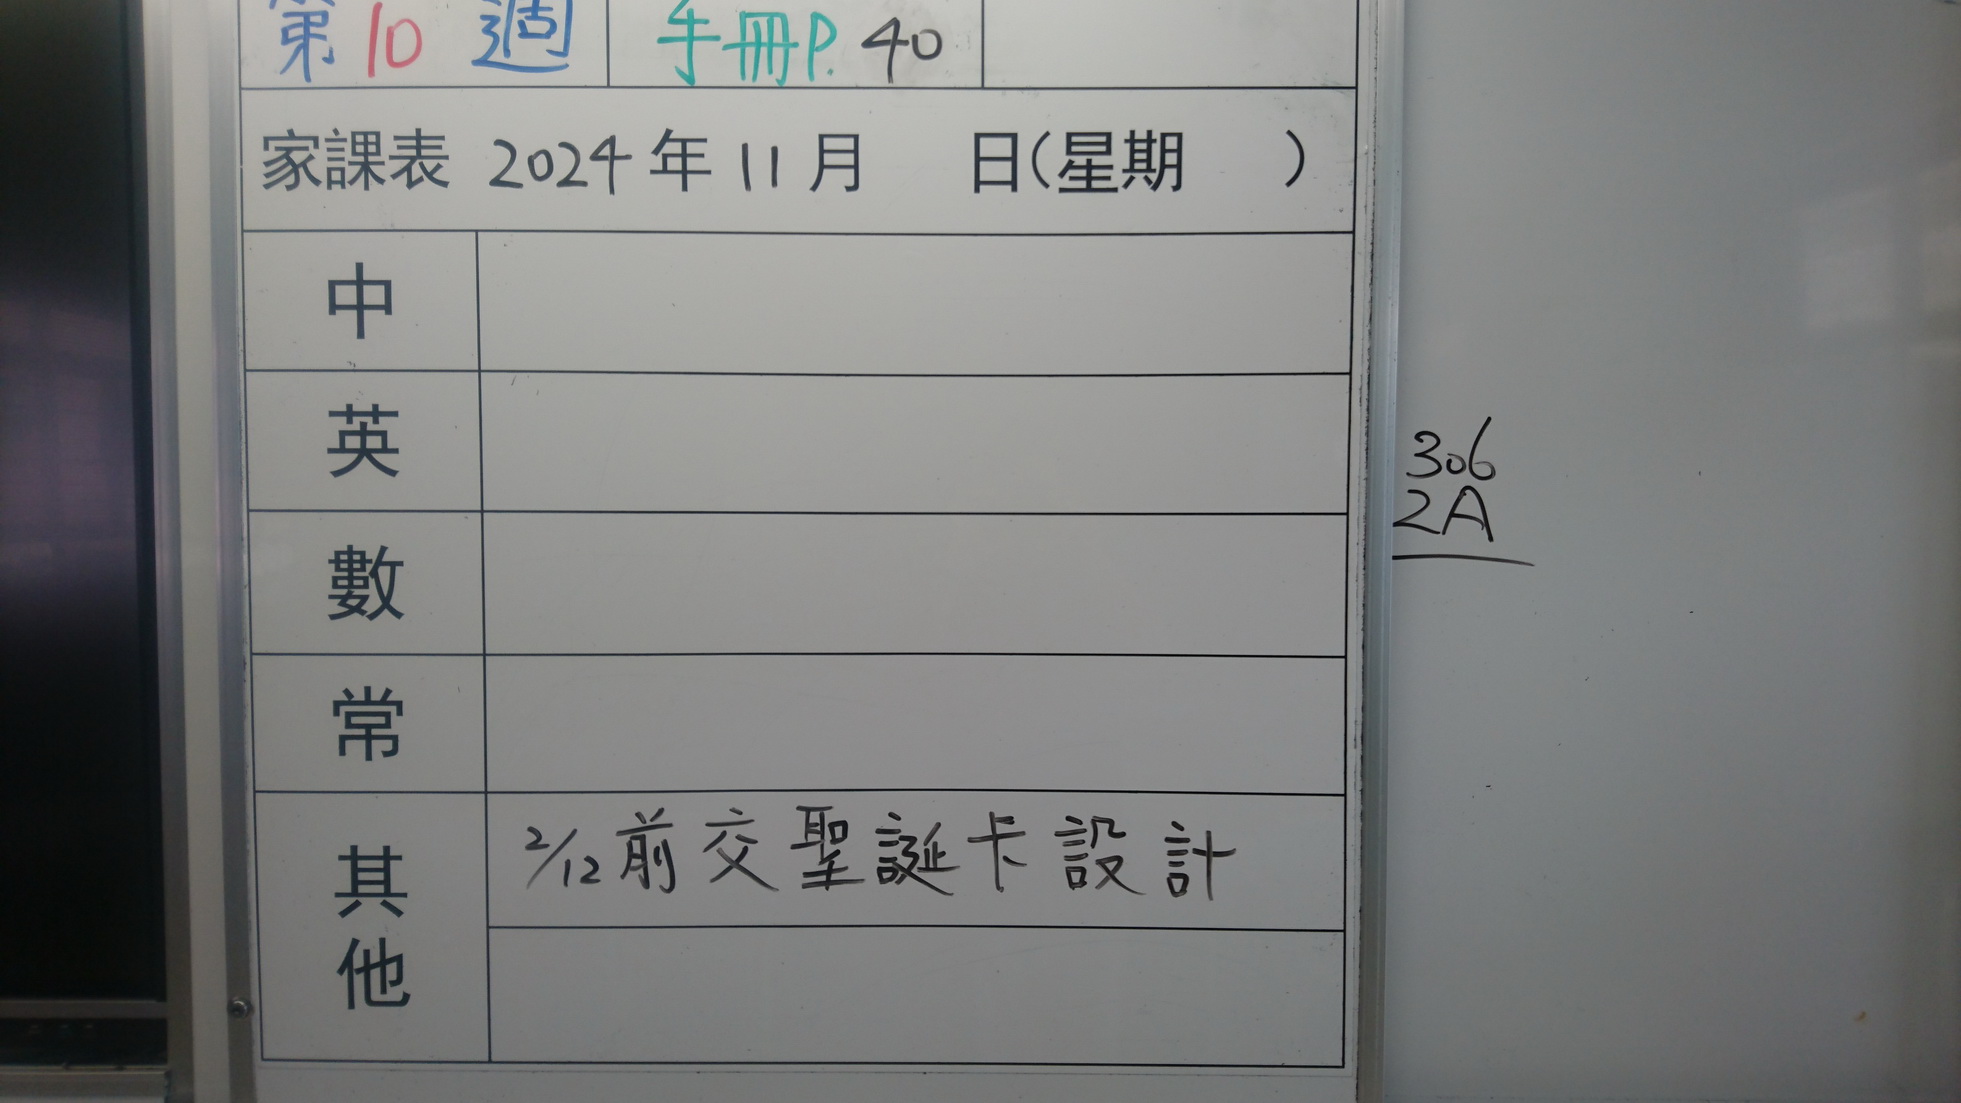 第10週 手冊P.40
家課表 2024年11月 日(星期 )
中
英
數
常
其他
2/12前交聖誕卡設計
306
2A